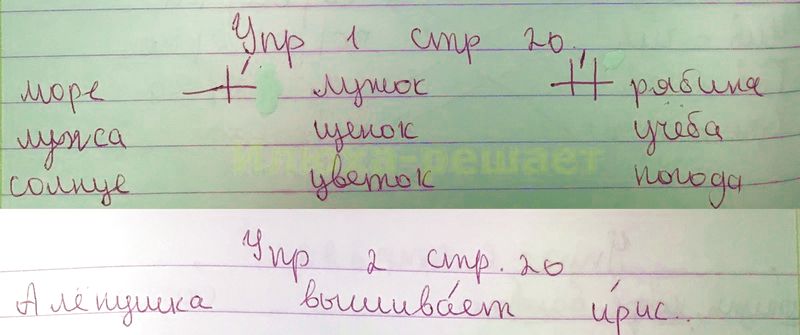 Упр 1 стр 20.
море лужок рябина
лужа щенок учёба
солнце цветок погода
Илюха-решает
Упр 2 стр. 20
Алёнушка вышива́ет и́рис..